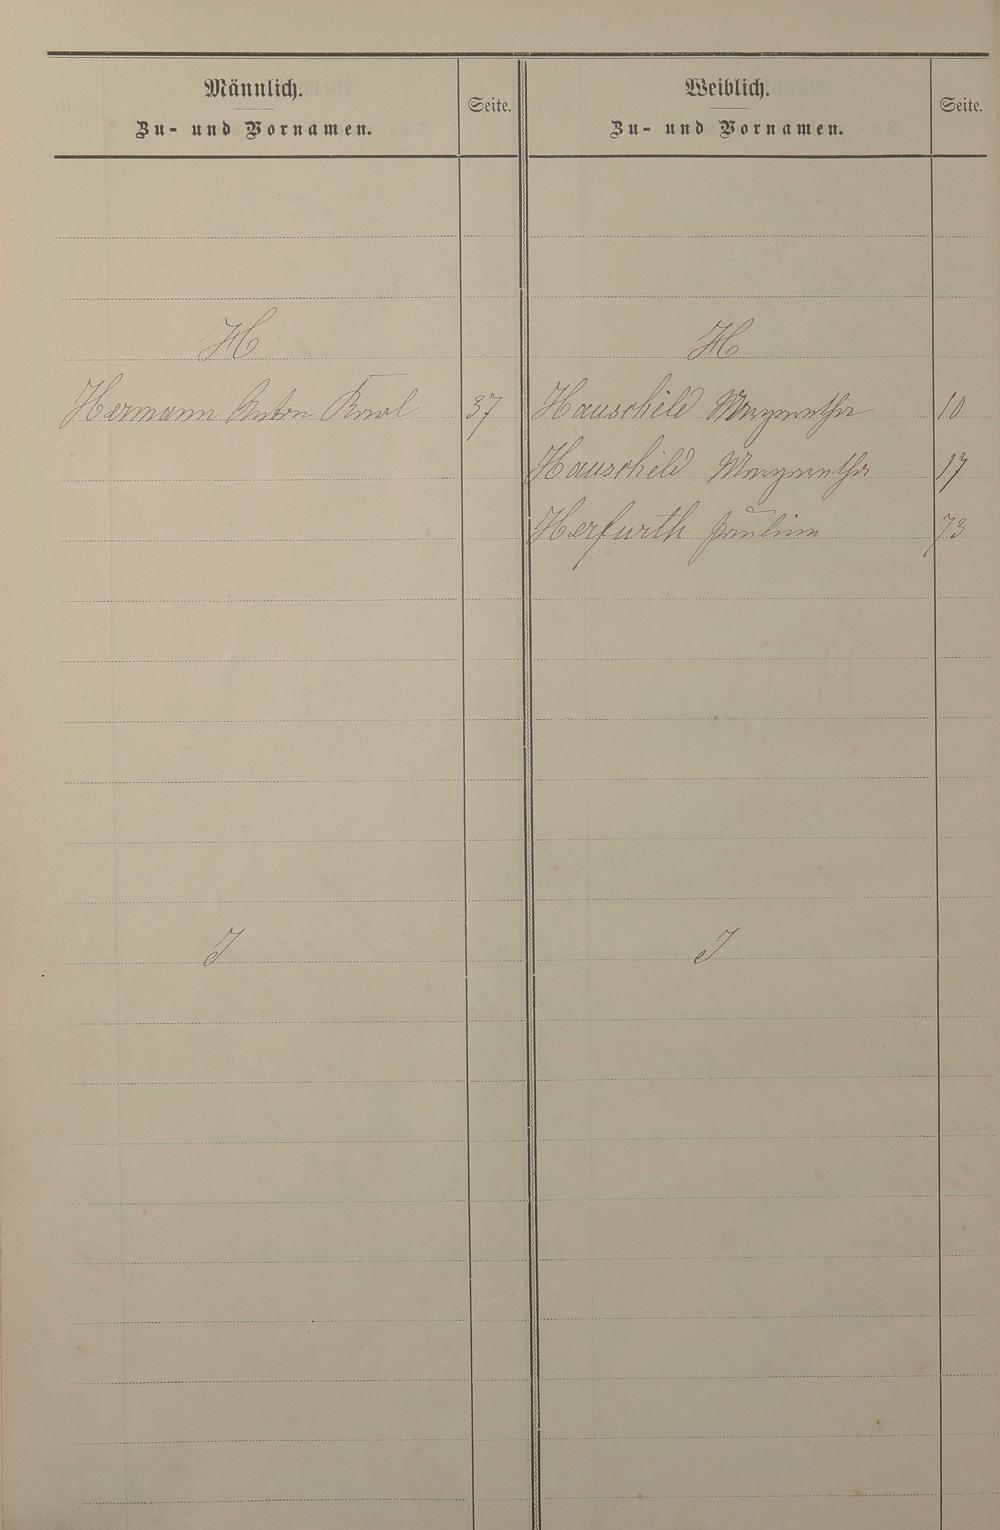 Männlich.
Zu- und Vornamen.
Seite.
Weiblich.
Zu- und Vornamen.
Seite.
H
H
Hermann Anton Karl 37 Hauschild Margaretha 10
Hauschild Margaretha 17
Herfurth Pauline 73
I
I